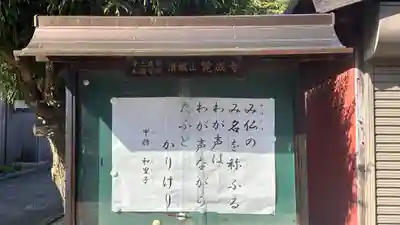 清巌山 覚成寺
み仏の
み名を称ふる
わが声は
わが声ながら
たふと
かりけり
甲斐 和里子